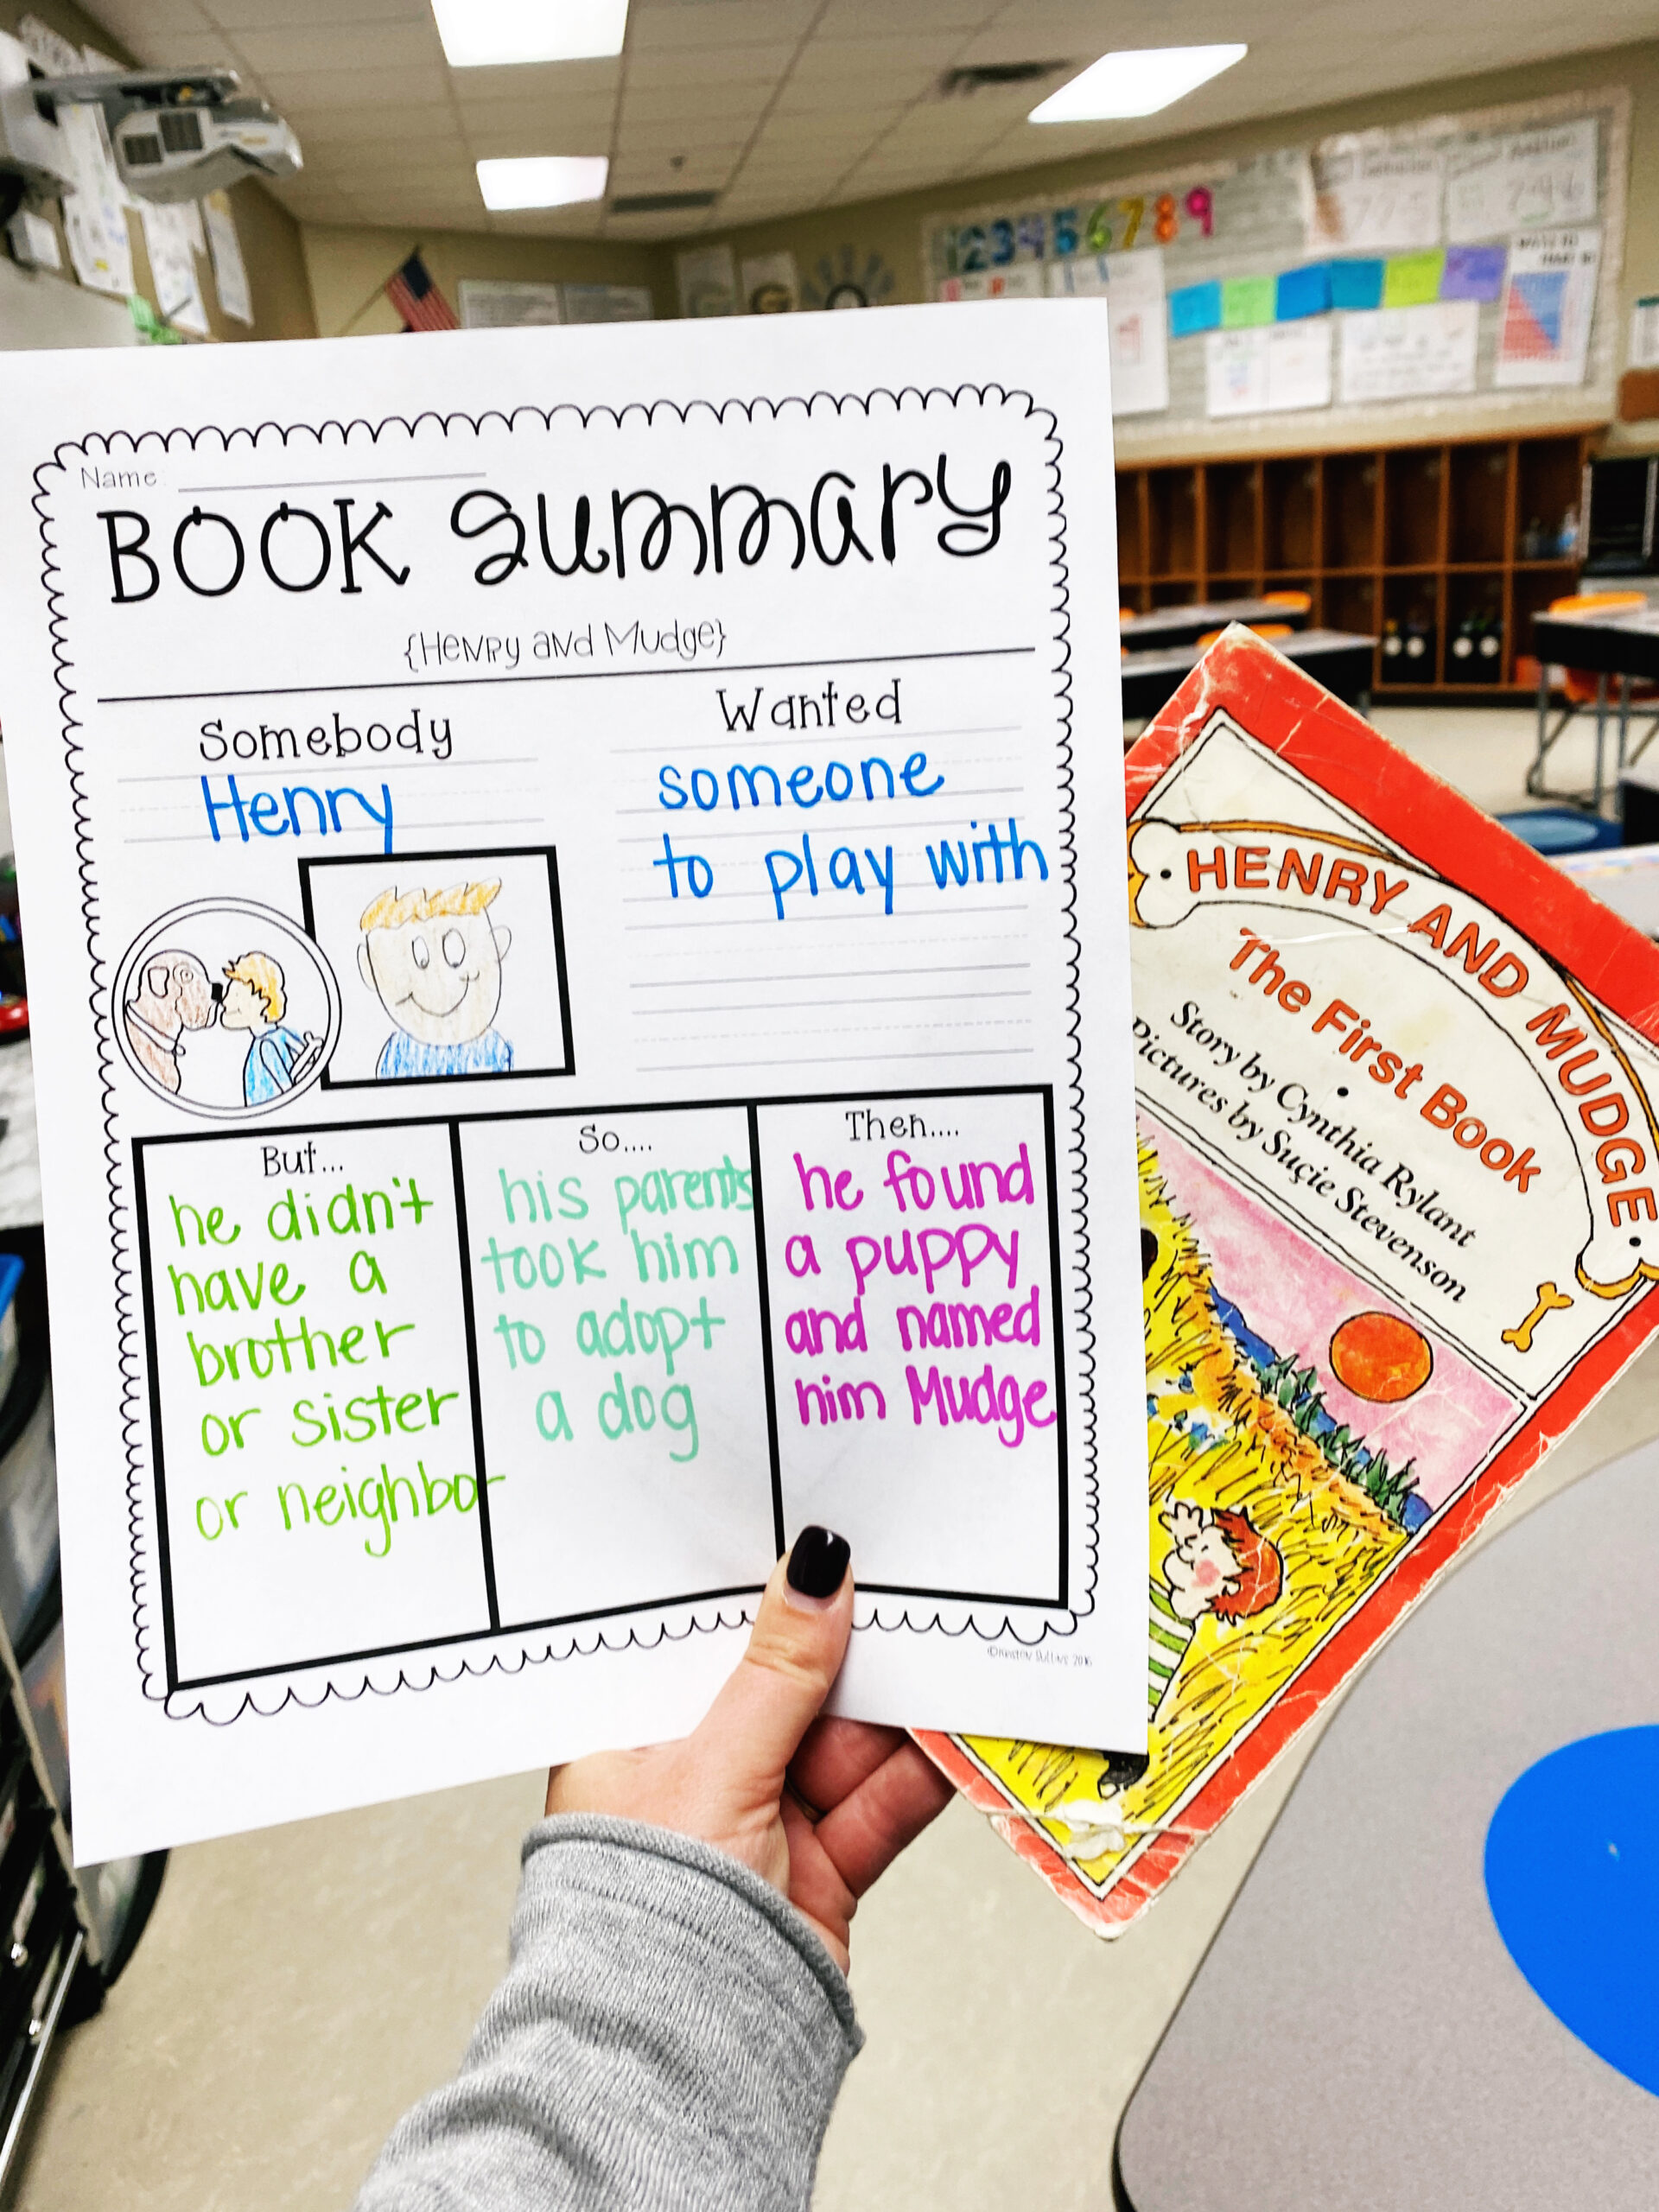 1 2 3 4 5 6 7 8 9
Name:
BOOK Summary
{Henry and Mudge}
Somebody
Henry
Wanted
someone
to play with
But...
he didn't
have a
brother
or sister
or neighbor
So....
his parents
took him
to adopt
a dog
Then....
he found
a puppy
and named
him Mudge
2016
HENRY AND MUDGE
The First Book
Story by Cynthia Rylant
Pictures by Suçie Stevenson